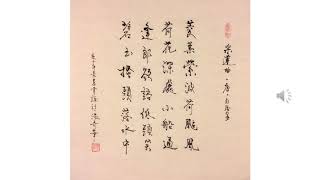 采蓮曲·唐·白居易
菱葉縈波荷颭風
荷花深處小船通
逢郎欲語低頭笑
碧玉搔頭落水中